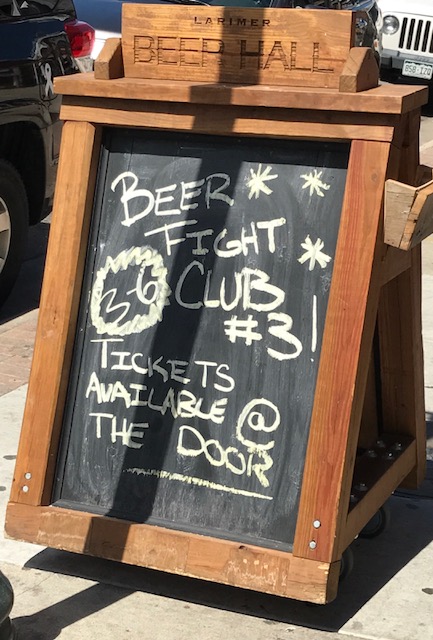 LARIMER
BEER HALL
BEER
FIGHT
3-6 CLUB
#3!
TICKETS
AVAILABLE @
THE DOOR